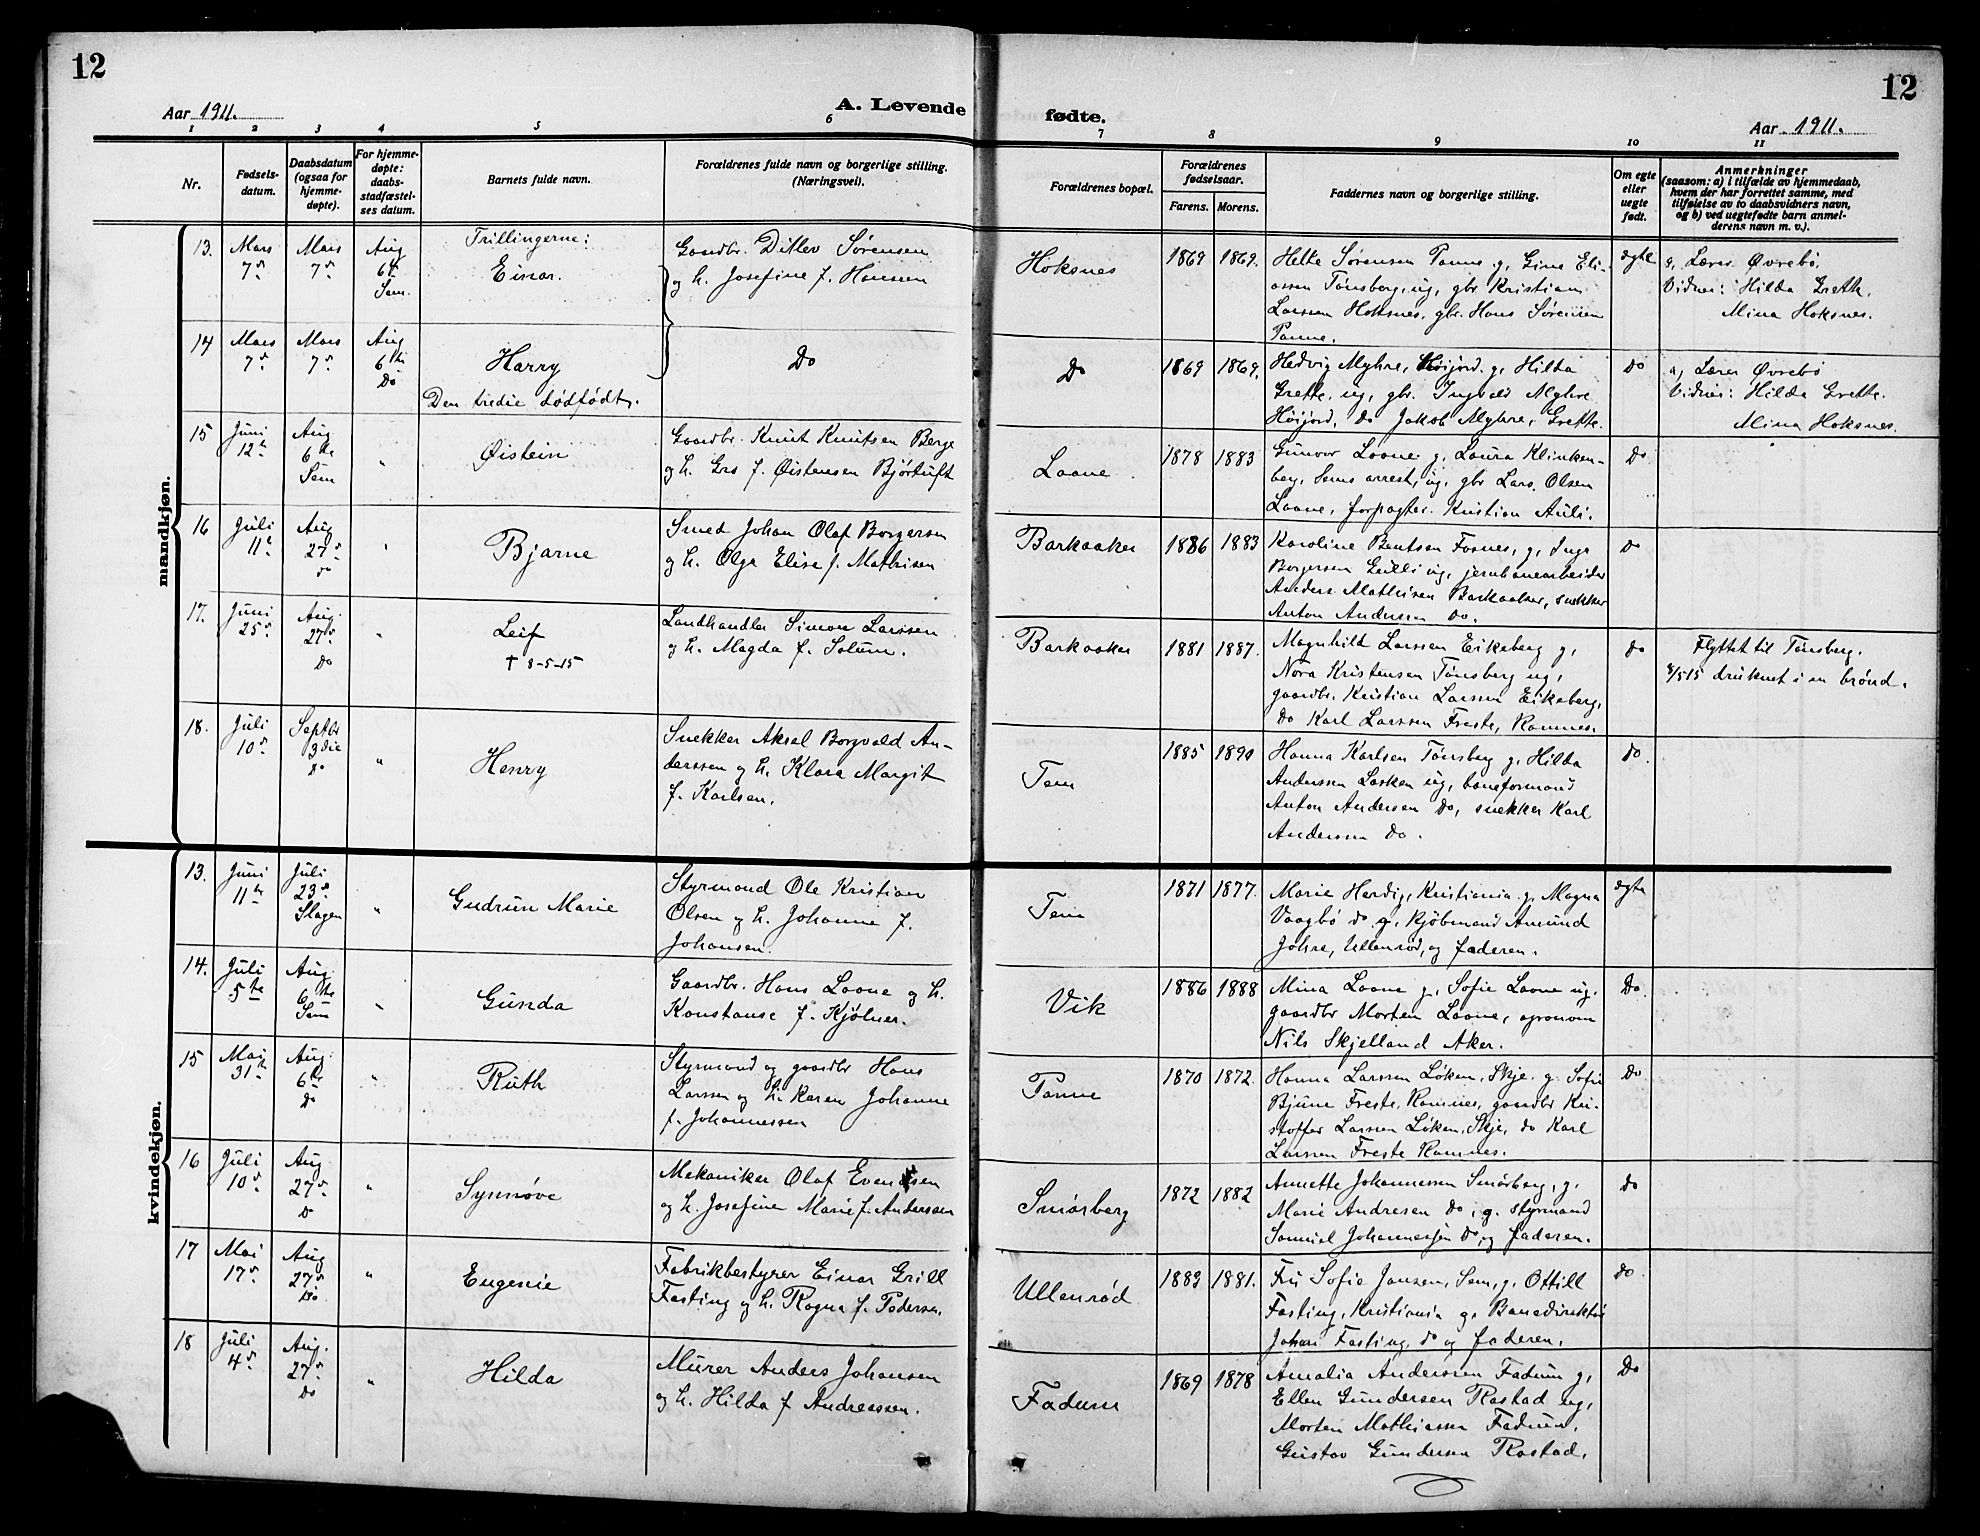 12
12
Aar 1911.
A. Levende
fødte.
Aar 1911.
1 2 3 4 5 6 7 8 9 10 11
Nr.
Fødsels-
datum.
Daabsdatum
(ogsaa for
hjemme-
døpte).
For hjemme-
døpte:
daabs-
stadfæstel-
ses datum.
Barnets fulde navn.
Forældrenes fulde navn og borgerlige stilling.
(Næringsvei).
Forældrenes bopæl.
Forældrenes
fødselsaar.
Farens. Morens.
Faddernes navn og borgerlige stilling.
Om egte
eller
uegte
født.
Anmerkninger
(saasom: a) i tilfælde av hjemmedaab,
hvem der har forrettet samme, med
tilføielse av to daabsvidners navn,
og b) ved uegtefødte barn anmel-
derens navn m. v.).
mandkjøn.
13.
Mars
7de
Mars
7de
Aug
6te
Sem.
Trillingerne:
Einar.
Gaardbr. Ditlev Sørensen
og h. Josefine f. Hansen
Hoksnes
1869 1869.
Helte Sørensen Panne g, Gine Eli-
assen Tønsberg, ug, gbr Kristian
Larssen Hoksnes, gbr. Hans Sørensen
Panne.
egte
a, Lærer Øvrebø.
Vidner: Hilda Grette.
Mina Hoksnes.
14
Mars
7de
Mars
7de
Aug
6te
Do
Harry
Den tredie dødfødt.
Do
Do
1869 1869.
Hedvig Myhre, Høijord. g, Hilda
Grette, ug, gbr. Ingvald Myhre
Høijord, Do Jakob Myhre, Grette.
Do
a, Lærer Øvrebø
Vidner: Hilda Grette.
Mina Hoksnes.
15
Juni
12te
Aug
6te
Sem
"
Øistein
Gaardbr. Knut Knutsen Berge
og h. Gro f. Øistensen Bjørtuft
Laane
1878 1883
Gunvor Laane g, Laura Klinken-
berg, Sems arrest, ug, gbr Lars Olsen
Laane, forpagter Kristian Auli.
Do
16
Juli
11te
Aug
27de
do
"
Bjarne
Smed Johan Olaf Borgersen
og h. Olga Elise f. Mathisen
Barkaaker
1886 1883
Karoline Bentsen Fosnes, g, Inga
Borgersen Gulli ug, jernbanearbeider
Anders Mathisen Barkaaker, snekker
Anton Andersen Do.
Do
17.
Juni
25de
Aug.
27de
Do
"
Leif
† 8-5-15
Landhandler Simon Larssen
og h. Magda f. Solum.
Barkaaker
1881 1887.
Magnhild Larssen Eikeberg g,
Nora Kristensen Tønsberg ug,
gaardbr. Kristian Larssen Eikeberg,
Do Karl Larssen Freste, Ramnes.
Do
Flyttet til Tønsberg.
8/5 15 druknet i en brønd.
18.
Juli
10de
Septbr
3die
Do
"
Henry
Snekker Aksel Borgvald An-
derssen og h. Klara Margit
f. Karlsen.
Tem
1885 1890
Hanna Karlsen Tønsberg g, Hilda
Anderssen Lasken ug, baneformand
Anton Andersen Do, snekker Karl
Anderssen Do.
Do.
kvindekjøn.
13.
Juni
11te
Juli
23de
Slagen
"
Gudrun Marie
Styrmand Ole Kristian
Olsen og h. Johanne f.
Johansen.
Tem
1871 1877.
Marie Hardig, Kristiania g, Magna
Vaagbø do g, Kjøbmand Amund
Johre, Ullenrød, og faderen.
egte
14.
Juli
5te
Aug
6te
Sem
"
Gunda
Gaardbr. Hans Laane og h.
Konstanse f. Kjølner.
Vik
1886 1888
Mina Laane g, Sofie Laane ug.
gaardbr Morten Laane, agronom
Nils Skjelland Aker.
Do.
15
Mai
31te
Aug.
6te
Do
"
Ruth
Styrmand og gaardbr Hans
Larssen og h. Karen Johanne
f. Johannessen
Panne
1870 1872.
Hanna Larssen Løken, Skje. g. Sofie
Bjune Freste, Ramnes, gaardbr Kri-
stoffer Larssen Løken, Skje, do Karl
Larssen Freste Ramnes.
Do
16
Juli
10de
Aug
27de
Do
"
Synnøve
Mekaniker Olaf Evensen
og h. Josefine Marie f. Andersen
Smørberg
1872 1882
Annette Johannessen Smørberg, g.
Marie Andresen Do, g. styrmand
Samuel Johannessen do, og faderen.
Do
17
Mai
17de
Aug
27de
Do.
"
Eugenie
Fabrikbestyrer Einar Grill
Fasting og h. Ragna f. Pedersen.
Ullenrød
1883 1881.
Fru Sofie Jansen, Sem, g. Ottill
Fasting, Kristiania g. Banedirektør
Johan Fasting, do og faderen.
Do.
18
Juli
4de
Aug.
27de
Do
"
Hilda
Murer Anders Johansen
og h. Hilda f Andreassen.
Fadum
1869 1878
Amalia Anderssen Fadum g,
Ellen Gundersen Rastad ug,
Morten Mathiassen Fadum,
Gustav Gundersen Rastad.
Do